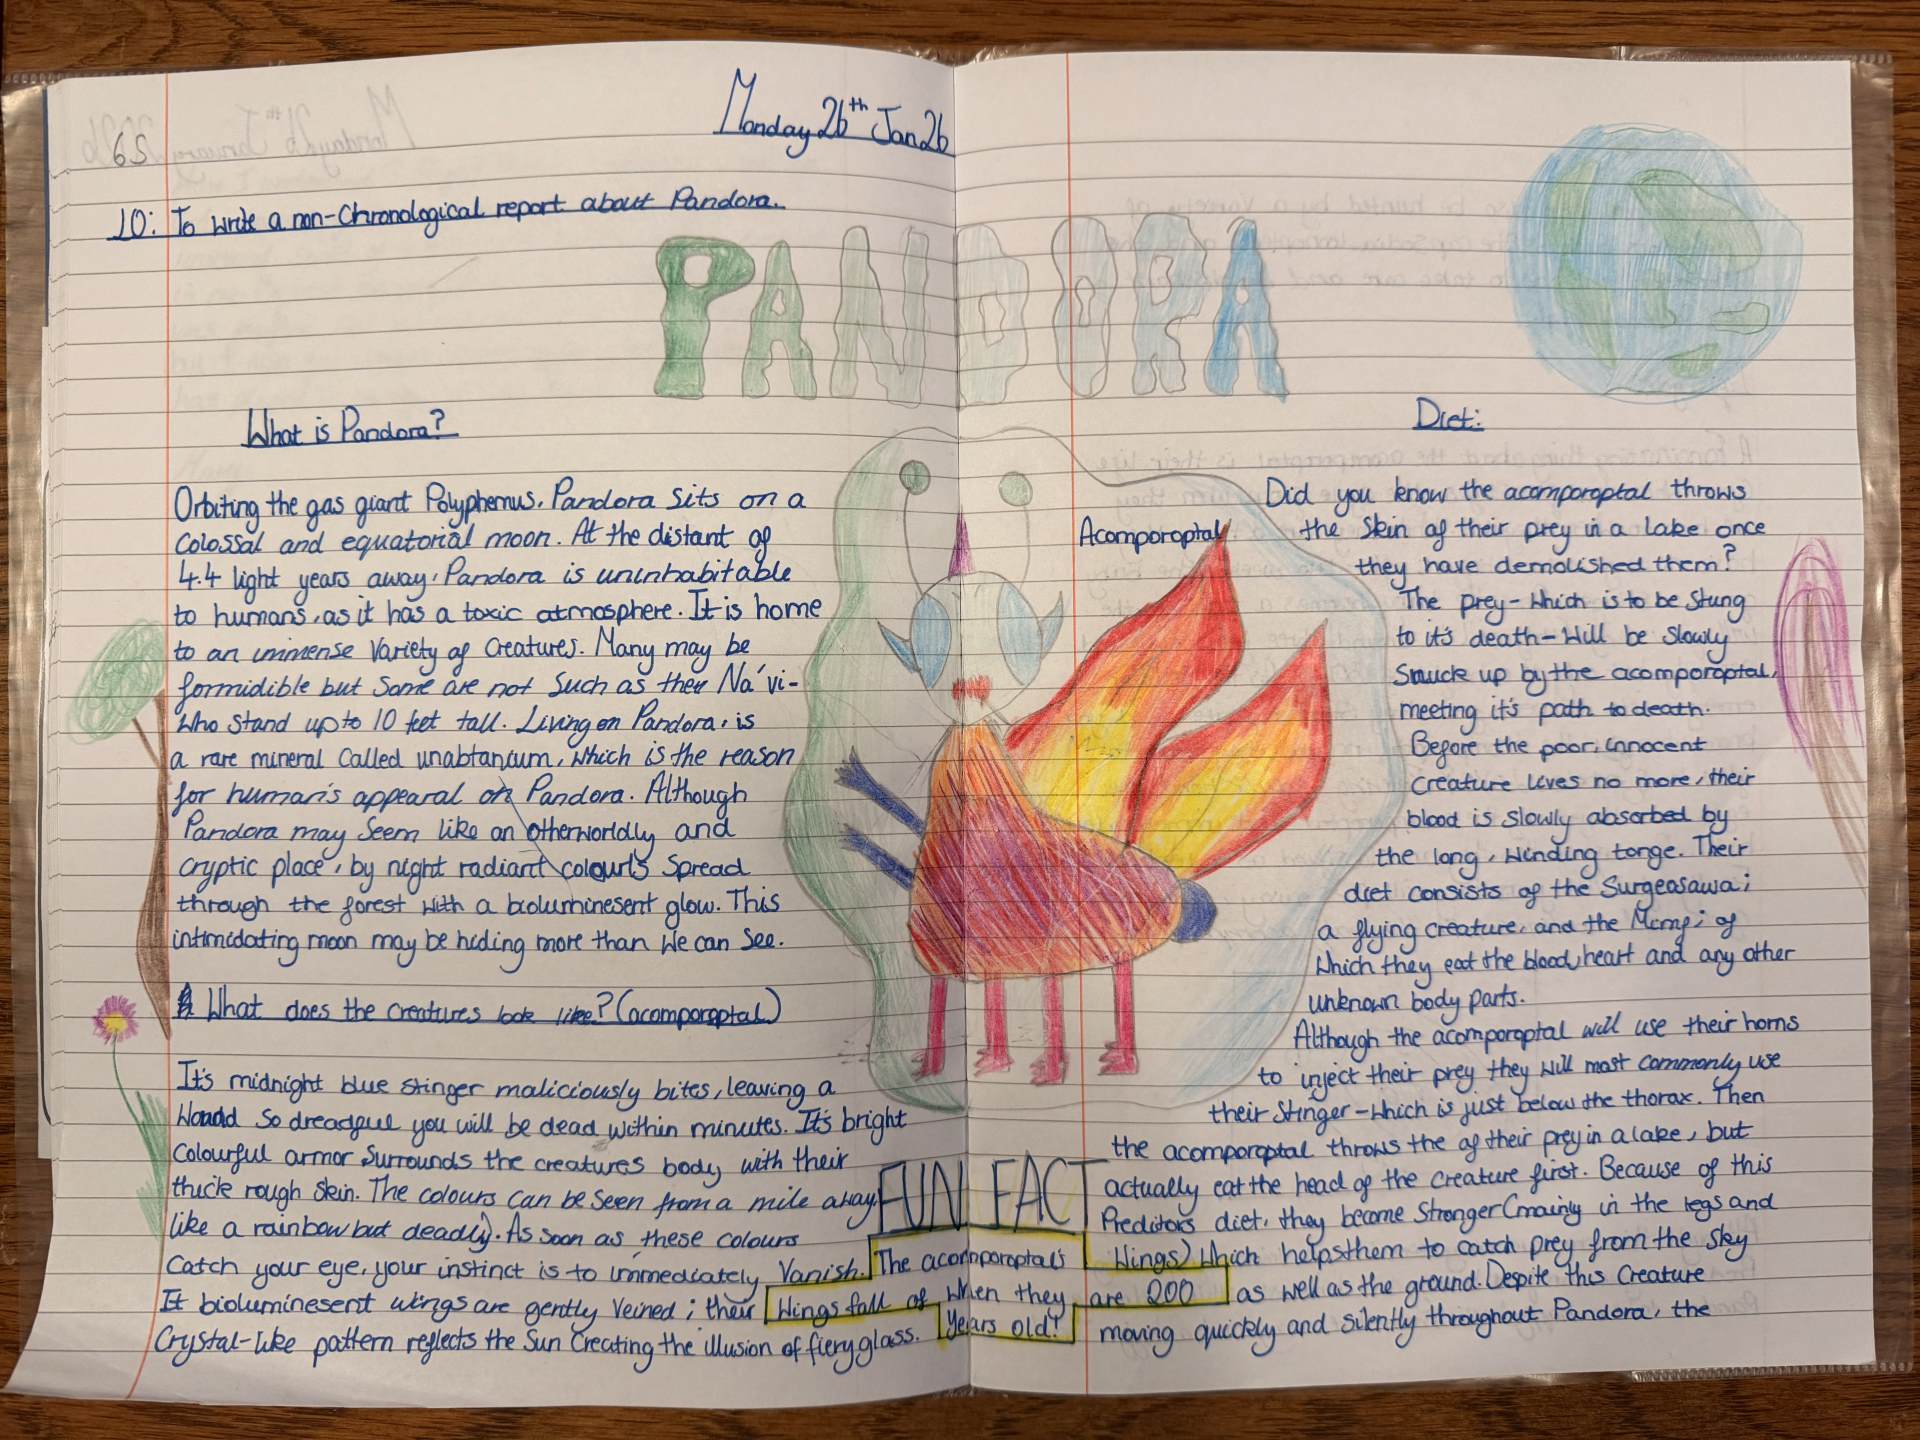 Monday 26th Jan 26
6S
LO: To write a non-chronological report about Pandora.
PANDORA
What is Pandora?
Orbiting the gas giant Polyphemus, Pandora sits on a
colossal and equatorial moon. At the distant of
4.4 light years away, Pandora is uninhabitable
to humans, as it has a toxic atmosphere. It is home
to an immense variety of creatures. Many may be
formidible but some are not such as their Na'vi-
who stand up to 10 feet tall. Living on Pandora, is
a rare mineral called unabtanium, which is the reason
for human's appearal on Pandora. Although
Pandora may seem like an otherworldly and
cryptic place, by night radiant colours spread
through the forest with a bioluminesent glow. This
intimidating moon may be hiding more than we can see.
What does the creatures look like? (acomporoptal)
It's midnight blue stinger maliciously bites, leaving a
wound so dreadful you will be dead within minutes. It's bright
colourful armor surrounds the creatures body with their
thick rough skin. The colours can be seen from a mile away
(like a rainbow but deadly). As soon as these colours
catch your eye, your instinct is to immediately vanish.
It bioluminesent wings are gently veined; their
crystal-like pattern reflects the sun creating the illusion of fiery glass.
FUN FACT
The acomporoptal's
wings fall of when they are 200
years old!
Acomporoptal
Diet:
Did you know the acomporoptal throws
the skin of their prey in a lake once
they have demolished them?
The prey-which is to be stung
to it's death-will be slowly
snuck up by the acomporoptal,
meeting it's path to death.
Before the poor, innocent
creature lives no more, their
blood is slowly absorbed by
the long, winding tonge. Their
diet consists of the Surgeasawa;
a flying creature, and the Mimpi; of
which they eat the blood, heart and any other
unknown body parts.
Although the acomporoptal will use their horns
to inject their prey they will most commonly use
their stinger-which is just below the thorax. Then
the acomporoptal throws the of their prey in a lake, but
actually eat the head of the creature first. Because of this
Preditors diet, they become stronger (mainly in the legs and
wings) which helps them to catch prey from the sky
as well as the ground. Despite this creature
moving quickly and silently throughout Pandora, the